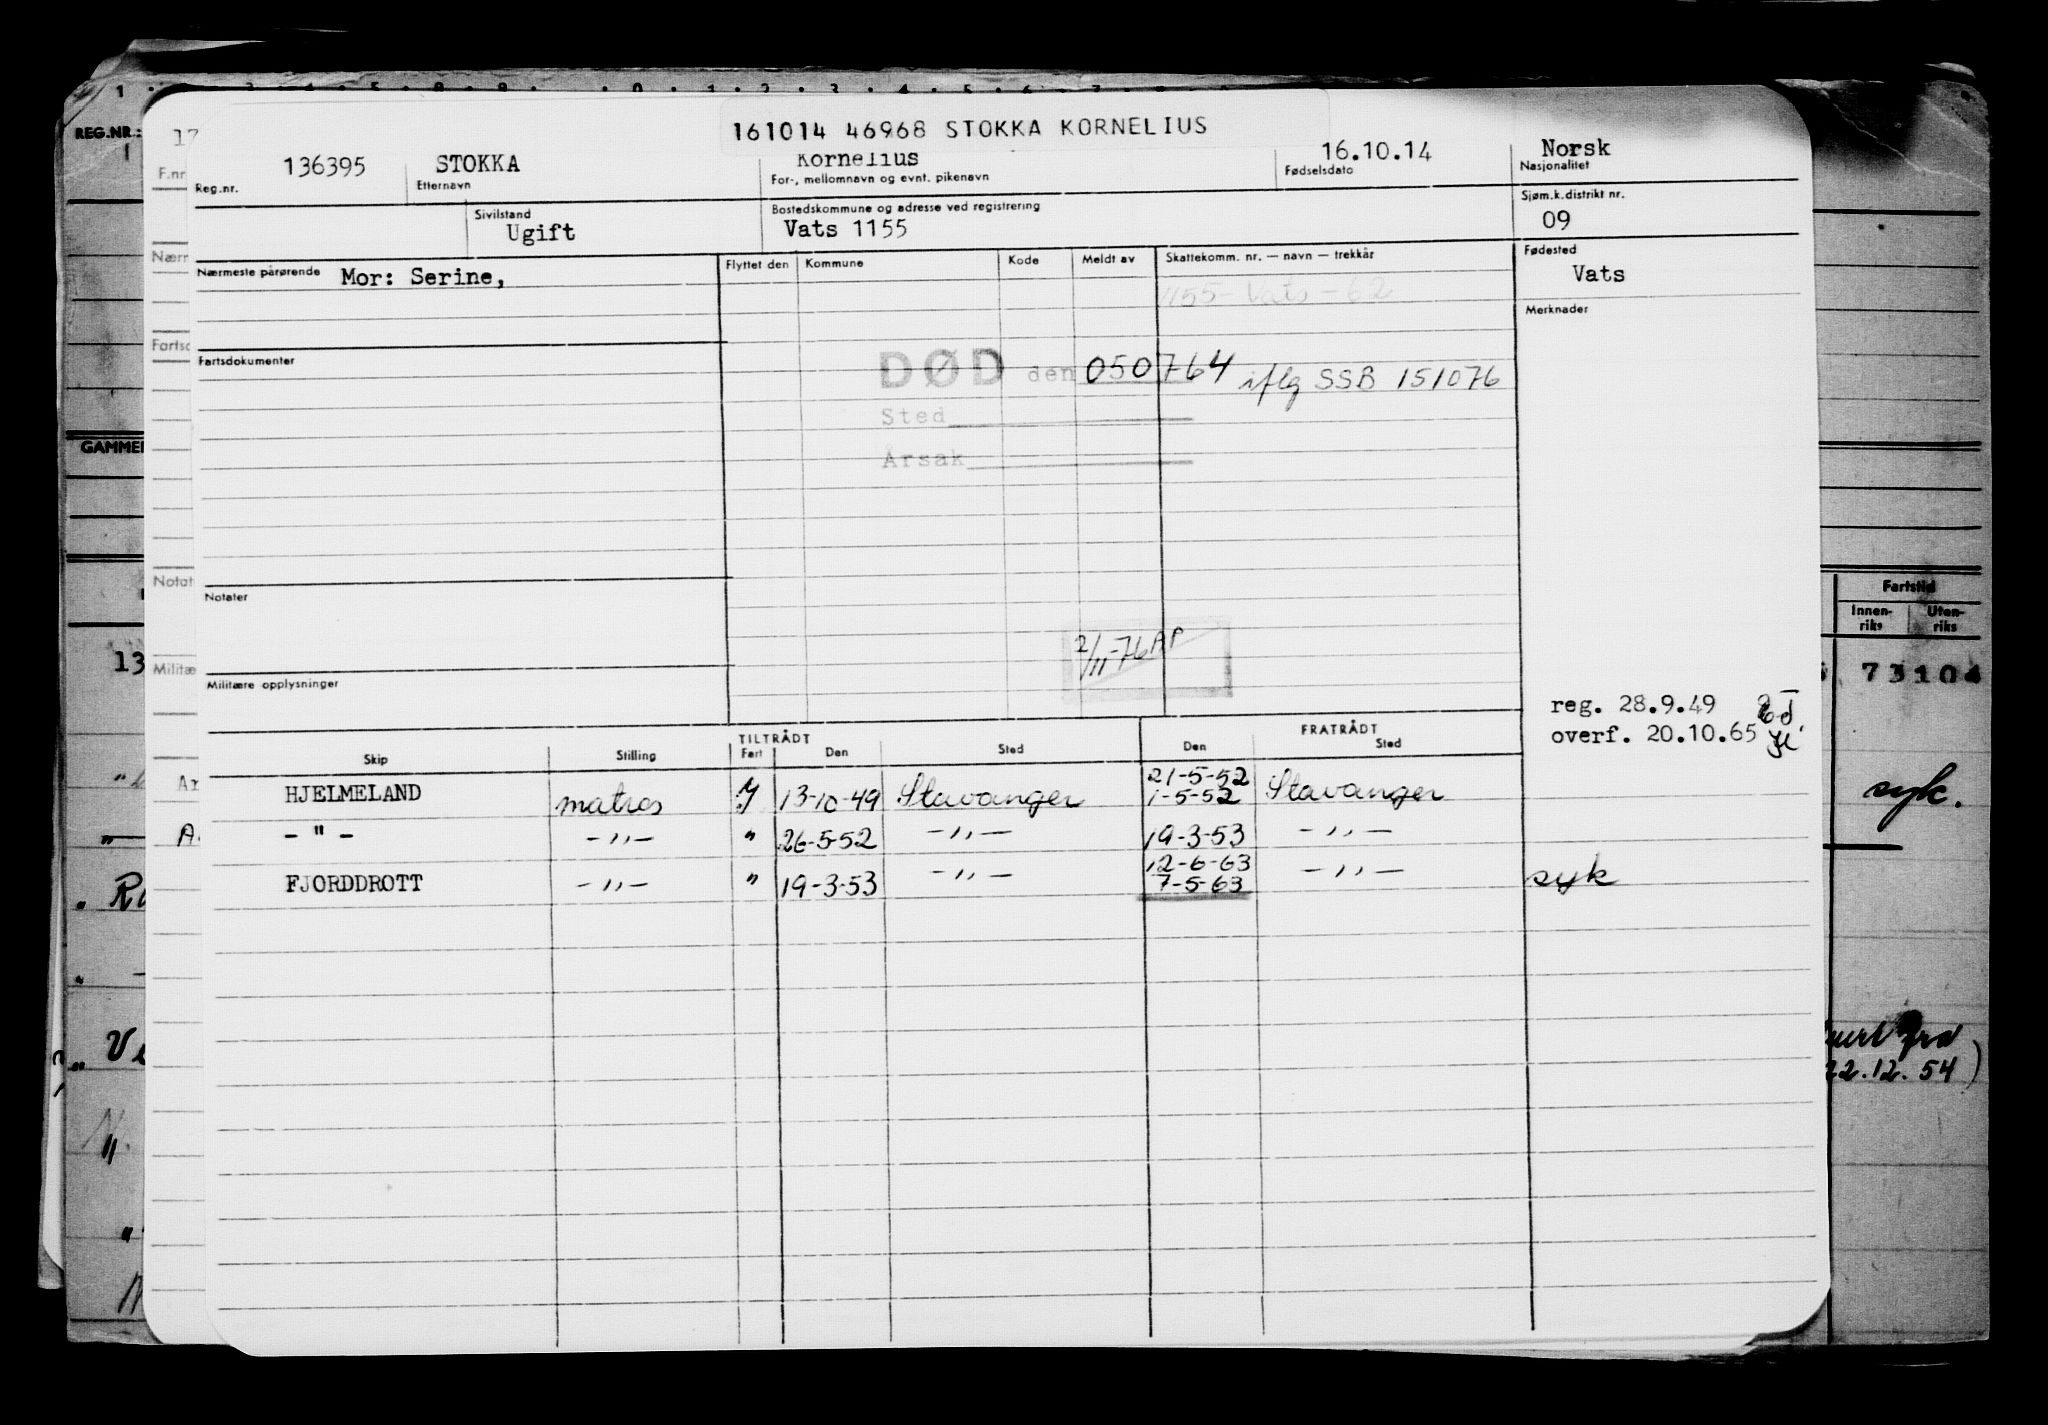 161014 46968 STOKKA KORNELIUS
REG.NR.:
17
136395 STOKKA Kornelius 16.10.14 Norsk
F.nr
Reg.nr. Etternavn For-, mellomnavn og evnt. pikenavn Fødselsdato Nasjonalitet
Sivilstand Bostedskommune og adresse ved registrering Sjøm.k.distrikt nr.
Ugift Vats 1155 09
Nærm
Nærmeste pårørende Mor: Serine, Flyttet den Kommune Kode Meldt av Skattekomm. nr. — navn — trekkår Fødested
Vats
1155 - Vats - 62
Merknader
Fartsd
Fartsdokumenter
DØD den 050764 iflg SSB 151076
Sted
Årsak
GAMMEL
Notat
Notater
Fartstid
Innen-riks Uten-riks
2/11-76 AP
13
73104
Militæ
Militære opplysninger
reg. 28.9.49
overf. 20.10.65
TILTRÅDT FRATRÅDT
Skip Stilling Fart Den Sted Den Sted
21-5-52
HJELMELAND matros 13-10-49 Stavanger 1-5-52 Stavanger
syk.
- " - -"- " 26-5-52 -"- 19-3-53 -"-
12-6-63
FJORDDROTT -"- " 19-3-53 -"- 7-5-63 -"- syk
22.12.54)